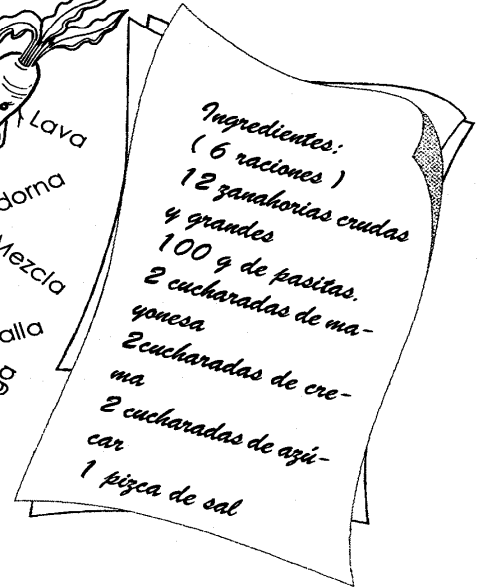 Lava
dorna
Mezcla
alla
ga
Ingredientes:
( 6 raciones )
12 zanahorias crudas
y grandes
100 g de pasitas.
2 cucharadas de ma-
yonesa
2cucharadas de cre-
ma
2 cucharadas de azú-
car
1 pizca de sal